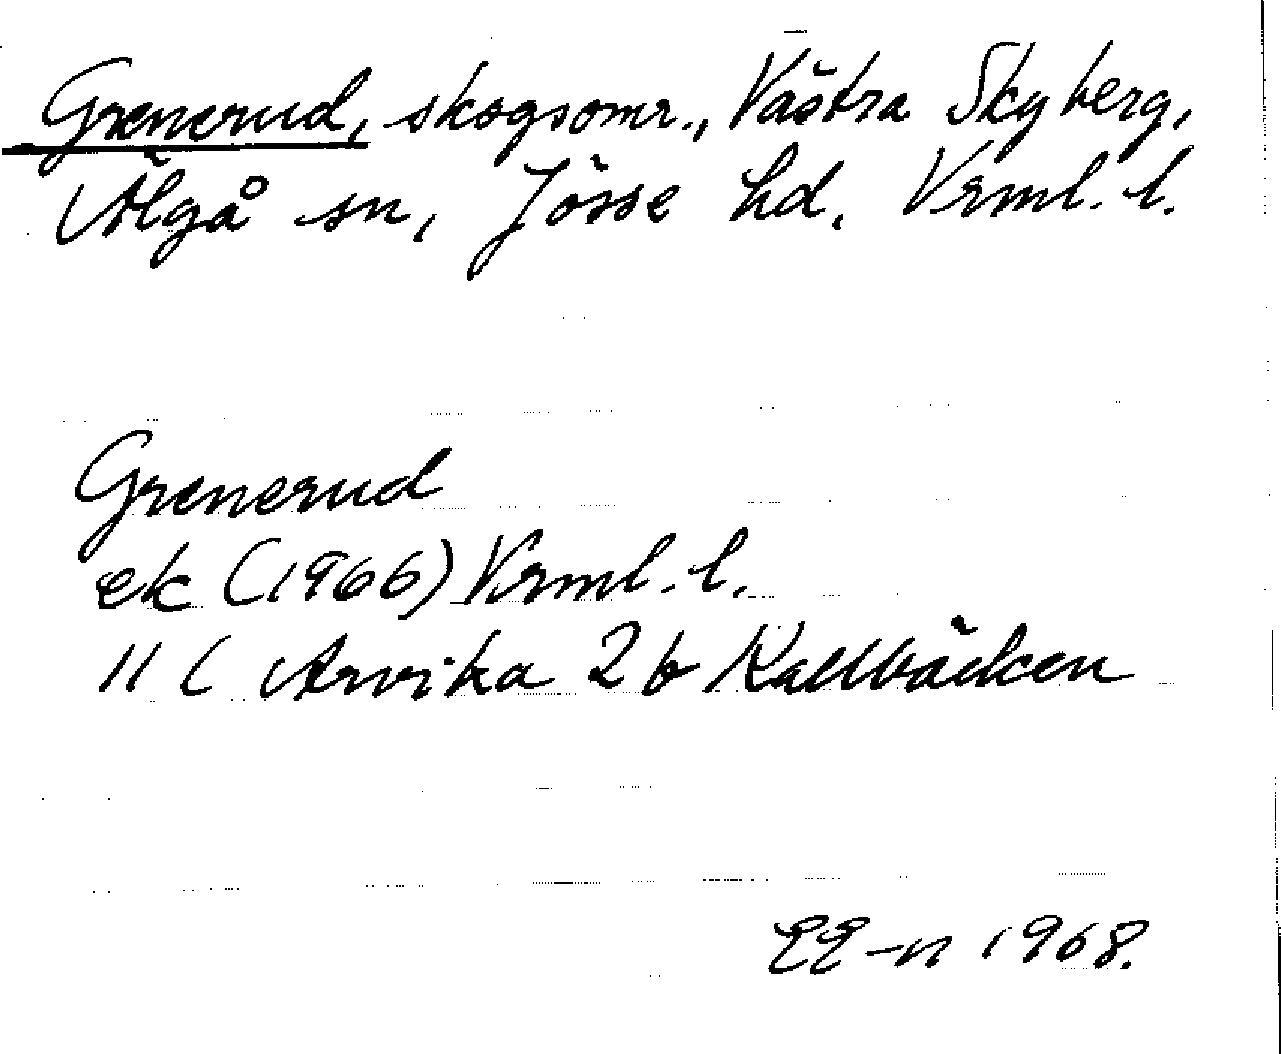 Grenerud, skogsomr., Västra Skyberg,
Älgå sn, Jösse hd. Vrml. l.
Grenerud
ek (1966) Vrml. l.
11 C Arvika 2 b Kallbäcken
EE-n 1968.